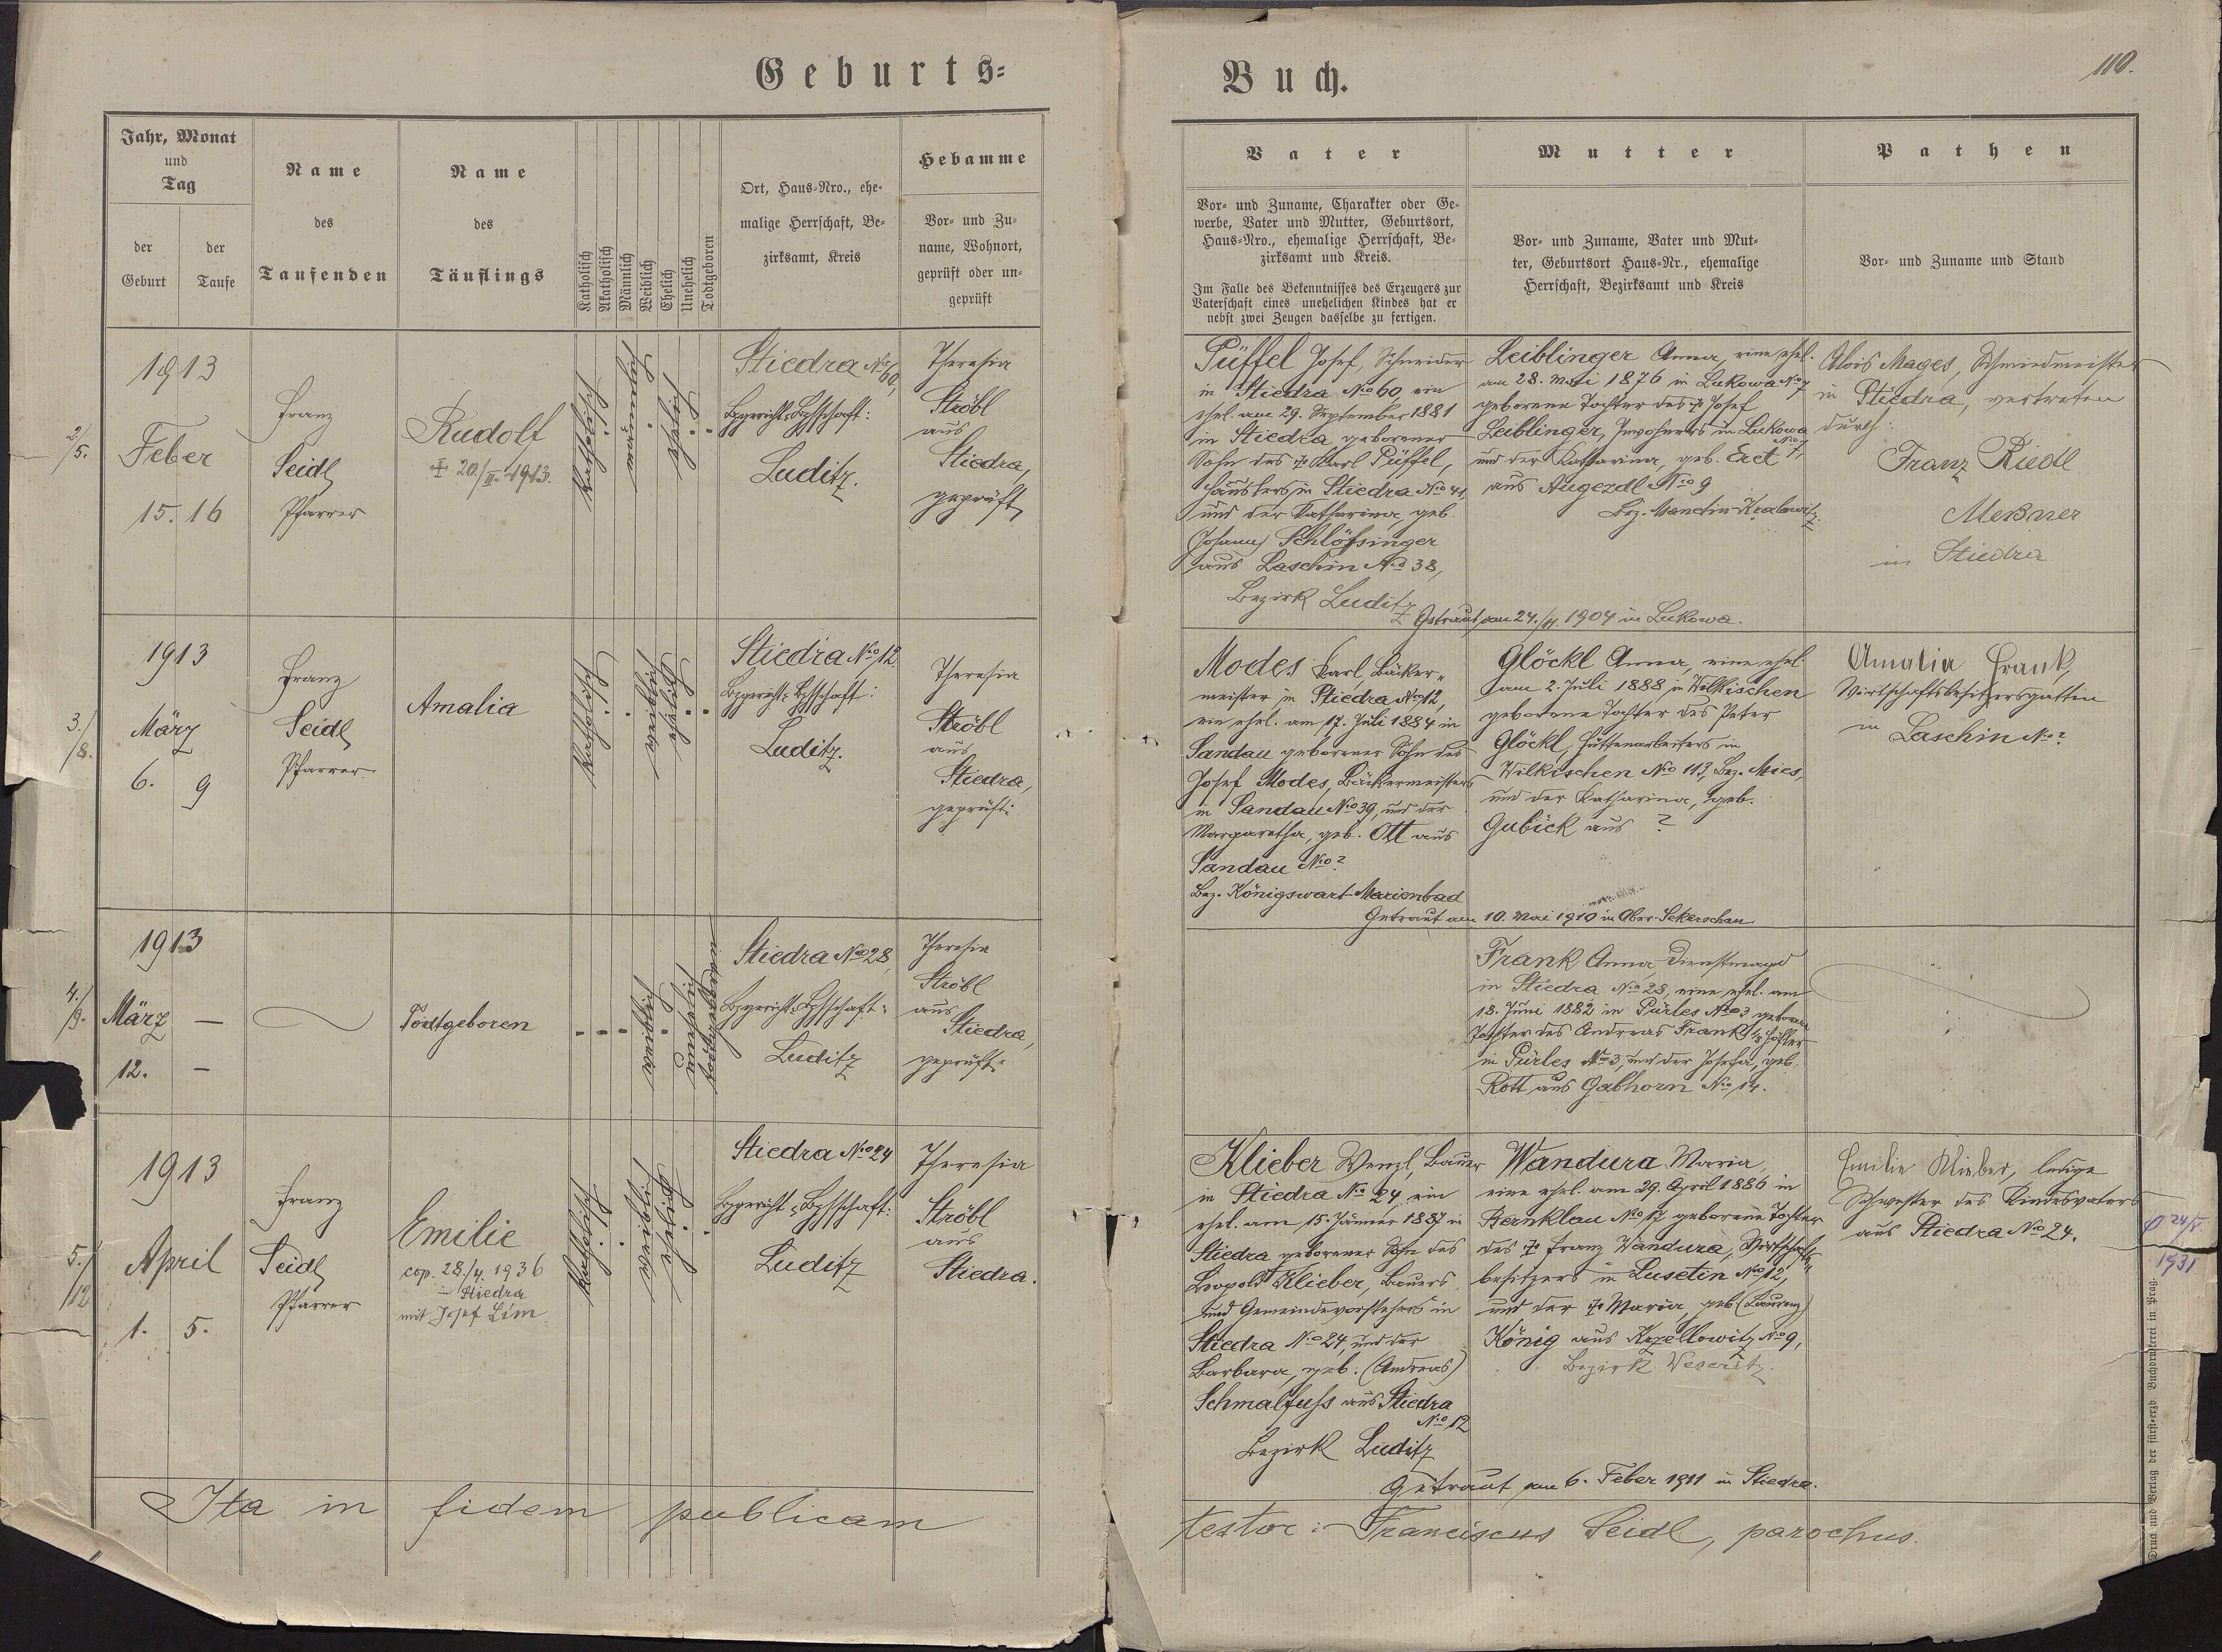 Geburts=
Buch.
110.
Jahr, Monat
und
Tag
der
Geburt
der
Taufe
Name
des
Taufenden
Name
des
Täuflings
Katholisch
Akatholisch
Männlich
Weiblich
Ehelich
Unehelich
Todtgeboren
Ort, Haus=Nro., ehe=
malige Herrschaft, Be=
zirksamt, Kreis
Hebamme
Vor= und Zu=
name, Wohnort,
geprüft oder un=
geprüft
Vater
Vor= und Zuname, Charakter oder Ge=
werbe, Vater und Mutter, Geburtsort,
Haus=Nro., ehemalige Herrschaft, Be=
zirksamt und Kreis.
Im Falle des Bekenntnisses des Erzeugers zur
Vaterschaft eines unehelichen Kindes hat er
nebst zwei Zeugen dasselbe zu fertigen.
Mutter
Vor= und Zuname, Vater und Mut=
ter, Geburtsort Haus=Nr., ehemalige
Herrschaft, Bezirksamt und Kreis
Pathen
Vor= und Zuname und Stand
2./5.
1913
Feber
15. 16
Franz
Seidl
Pfarrer
Rudolf
‡ 20/II. 1913.
katholisch
männlich
ehelich
Stiedra No 60,
Bzgericht=Bzhschaft:
Luditz.
Theresia
Ströbl
aus
Stiedra,
geprüft
Püffel Josef, Schneider
in Stiedra No 60, ein
ehel. am 29. September 1881
in Stiedra geborener
Sohn des ‡ Karl Püffel,
Häuslers in Stiedra No 41,
und der Katharina, geb.
(Johann) Schlössinger
aus Laschin No 38,
Bezirk Luditz
Leiblinger Anna, eine ehel.
am 28. Mai 1876 in Lukowa No 7
geborene Tochter des ‡ Josef
Leiblinger, Inwohners in Lukowa
No 7,
und der Katharina, geb. Eret
aus Augezdl No 9
Bez. Manetin-Kralowitz.
Getraut am 24./11. 1904 in Lukowa.
Alois Mages, Schmiedmeister
in Stiedra, vertreten
durch:
Franz Riedl
Meßner
in Stiedra
3./8.
1913
März
6. 9
Franz
Seidl
Pfarrer
Amalia
katholisch
weiblich
ehelich
Stiedra No 12.
Bzgericht=Bzhschaft:
Luditz.
Theresia
Ströbl
aus
Stiedra,
geprüft.
Modes Karl, Bäker=
meister in Stiedra No 12,
ein ehel. am 17. Juli 1884 in
Sandau geborener Sohn des
Josef Modes, Bäkermeisters
in Sandau No 39, und der
Margaretha, geb. Ott aus
Sandau No ?
Bez. Königswart-Marienbad
Glöckl Anna, eine ehel.
am 2. Juli 1888 in Wilkischen
geborene Tochter des Peter
Glöckl, Hüttenarbeiters in
Wilkischen No 113, Bez. Mies,
und der Katharina, geb.
Gubick aus ?
Getraut am 10. Mai 1910 in Ober-Sekerschan
Amalia Frank,
Wirtschaftsbesitzersgattin
in Laschin No ?
4./9.
1913
März —
12. —
Todtgeboren
weiblich
unehelich
todtgeboren
Stiedra No 28,
Bzgericht=Bzhschaft:
Luditz
Theresia
Ströbl
aus
Stiedra,
geprüft.
Frank Anna Dienstmagd
in Stiedra No 28, eine ehel. am
18. Juni 1882 in Pürles No 3 geborene
Tochter des Andreas Frank, 1/8 Höfler
in Pürles No 3, und der Josefa, geb.
Rott aus Gabhorn No 14.
5./12
1913
April
1. 5.
Franz
Seidl
Pfarrer
Emilie
cop. 28./4. 1936
in Stiedra
mit Josef Lim
katholisch
weiblich
ehelich
Stiedra No 24
Bzgericht=Bzhschaft:
Luditz
Theresia
Ströbl
aus
Stiedra.
Klieber Wenzl, Bauer
in Stiedra No 24, ein
ehel. am 15. Jänner 1887 in
Stiedra geborener Sohn des
Leopold Klieber, Bauers
und Gemeindevorstehers in
Stiedra No 24, und der
Barbara, geb. (Andreas)
Schmalfuss aus Stiedra
No 12
Bezirk Luditz
Wandura Maria,
eine ehel. am 29. April 1886 in
Bernklau No 17 geborene Tochter
des ‡ Franz Wandura, Wirtschafts=
besitzers in Lusetin No 12,
und der ‡ Maria, geb. (Laurenz)
König aus Krzellowitz No 9,
Bezirk Weseritz.
Getraut am 6. Feber 1911 in Stiedra.
Emilie Klieber, ledige
Schwester des Kindesvaters
aus Stiedra No 24.
24/V.
1931
Ita in fidem publicam
testor: Franciscus Seidl, parochus.
Druck und Verlag der fürst=erzb Buchdruckerei in Prag.